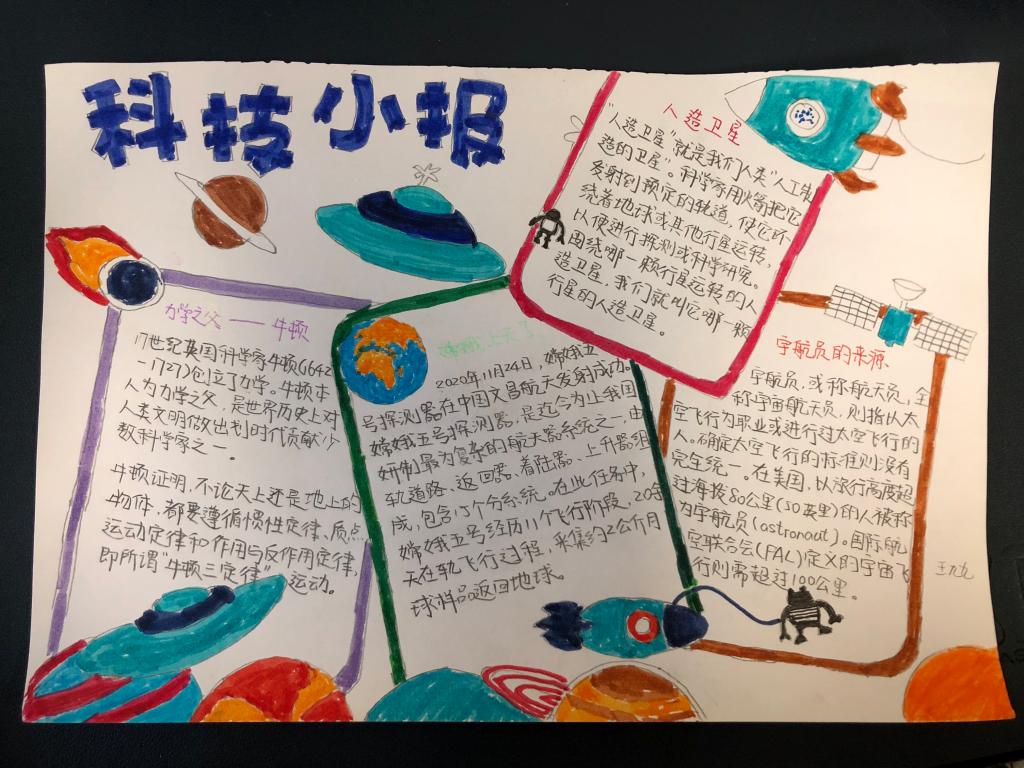 科技小报
力学之父——牛顿
17世纪英国科学家牛顿(1642
-1727)创立了力学。牛顿本
人为力学之父，是世界历史上对
人类文明做出划时代贡献少
数科学家之一。
牛顿证明，不论天上还是地上的
物体，都要遵循惯性定律、质点
运动定律和作用与反作用定律，
即所谓“牛顿三定律”运动。
嫦娥上天了
2020年11月24日，嫦娥五
号探测器在中国文昌航天发射成功。
嫦娥五号探测器，是迄今为止我国
研制最为复杂的航天器系统之一，由
轨道路、返回器、着陆器、上升器组
成，包含15个分系统。在此任务中，
嫦娥五号经历11个飞行阶段，20余
天在轨飞行过程，采集约2公斤月
球样品返回地球。
人造卫星
“人造卫星”就是我们人类“人工制
造的卫星”。科学家用火箭把它
发射到预定的轨道，使它环
绕着地球或其他行星运转，
以便进行探测或科学研究。
围绕哪一颗行星运转的人
造卫星，我们就叫它哪一颗
行星的人造卫星。
宇航员的来源
宇航员，或称航天员，全
称宇宙航天员，则指以太
空飞行为职业或进行过太空飞行的
人。确定太空飞行的标准则没有
完全统一。在美国，以旅行高度超
过海拔80公里(50英里)的人被称
为宇航员(astronaut)。国际航
空联合会(FAL)定义的宇宙飞
行则需超过100公里。